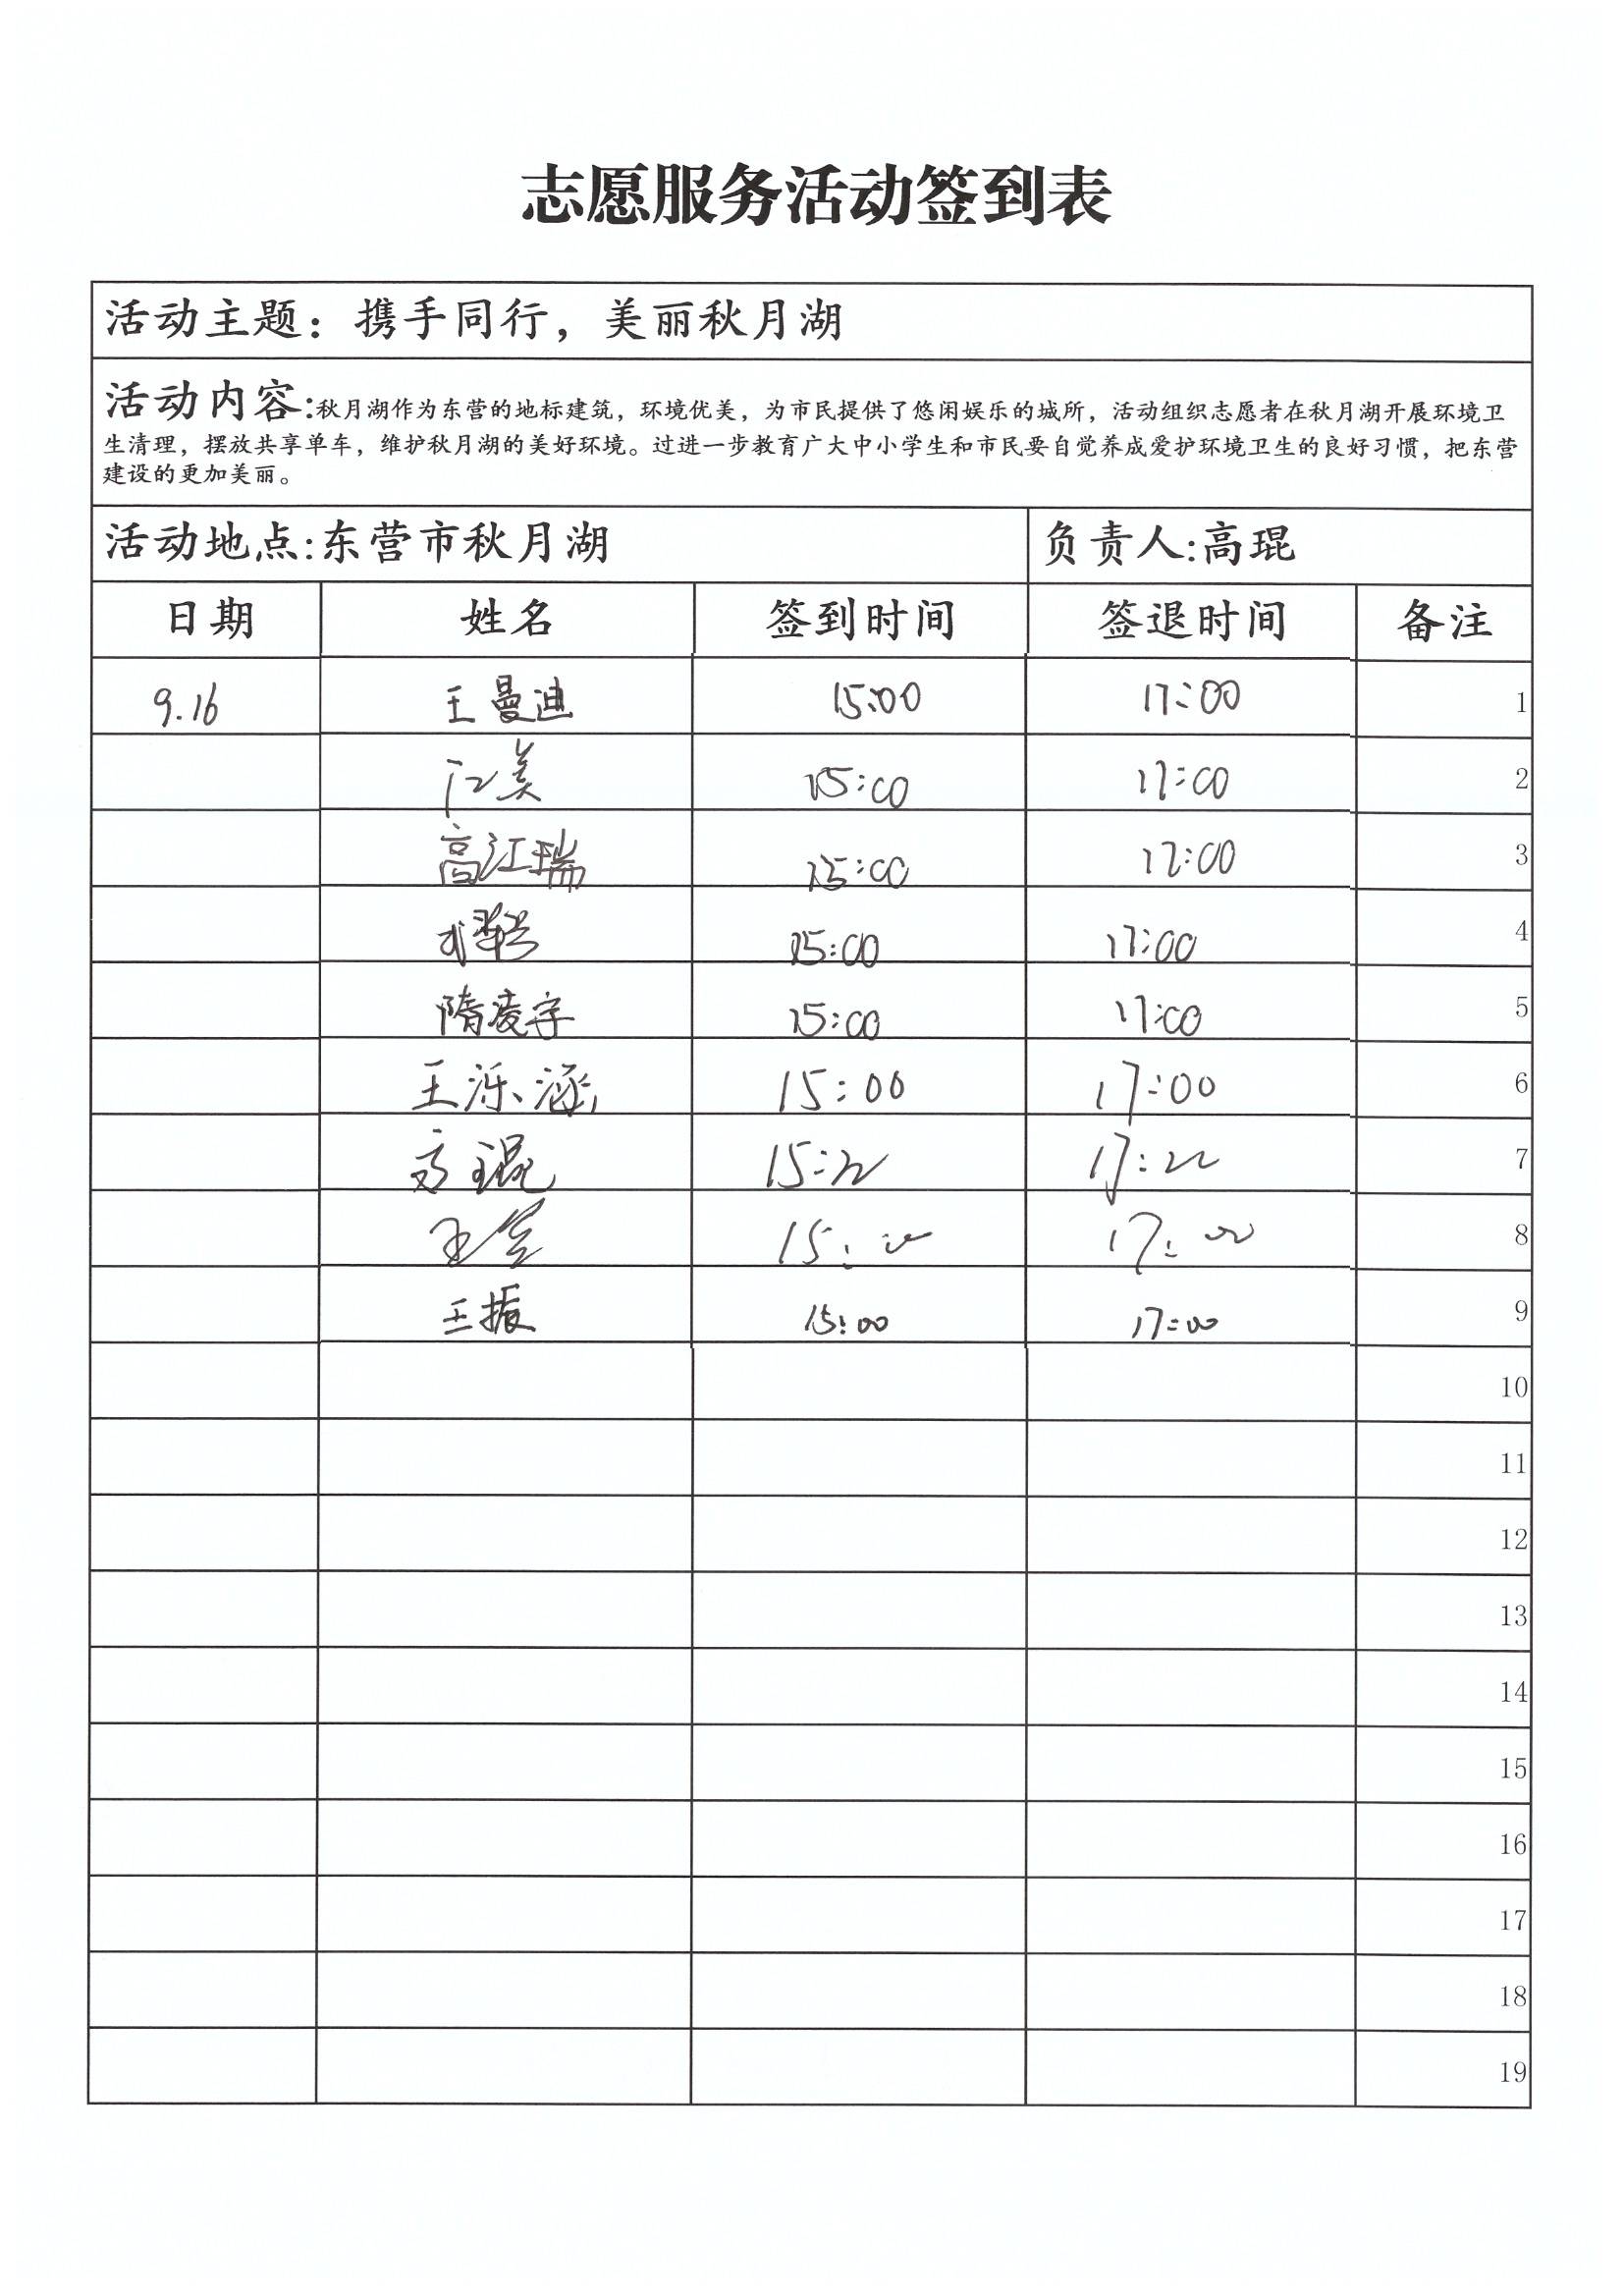 志愿服务活动签到表
活动主题：携手同行，美丽秋月湖
活动内容:秋月湖作为东营的地标建筑，环境优美，为市民提供了悠闲娱乐的城所，活动组织志愿者在秋月湖开展环境卫
生清理，摆放共享单车，维护秋月湖的美好环境。过进一步教育广大中小学生和市民要自觉养成爱护环境卫生的良好习惯，把东营
建设的更加美丽。
活动地点:东营市秋月湖 负责人:高琨
日期 姓名 签到时间 签退时间 备注
9.16 王曼迪 15:00 17:00 1
江美 15:00 17:00 2
高江瑞 15:00 17:00 3
15:00 17:00 4
隋凌宇 15:00 17:00 5
王泺涵 15:00 17:00 6
高琨 7
王 15:00 17:00 8
王振 15:00 17:00 9
10
11
12
13
14
15
16
17
18
19